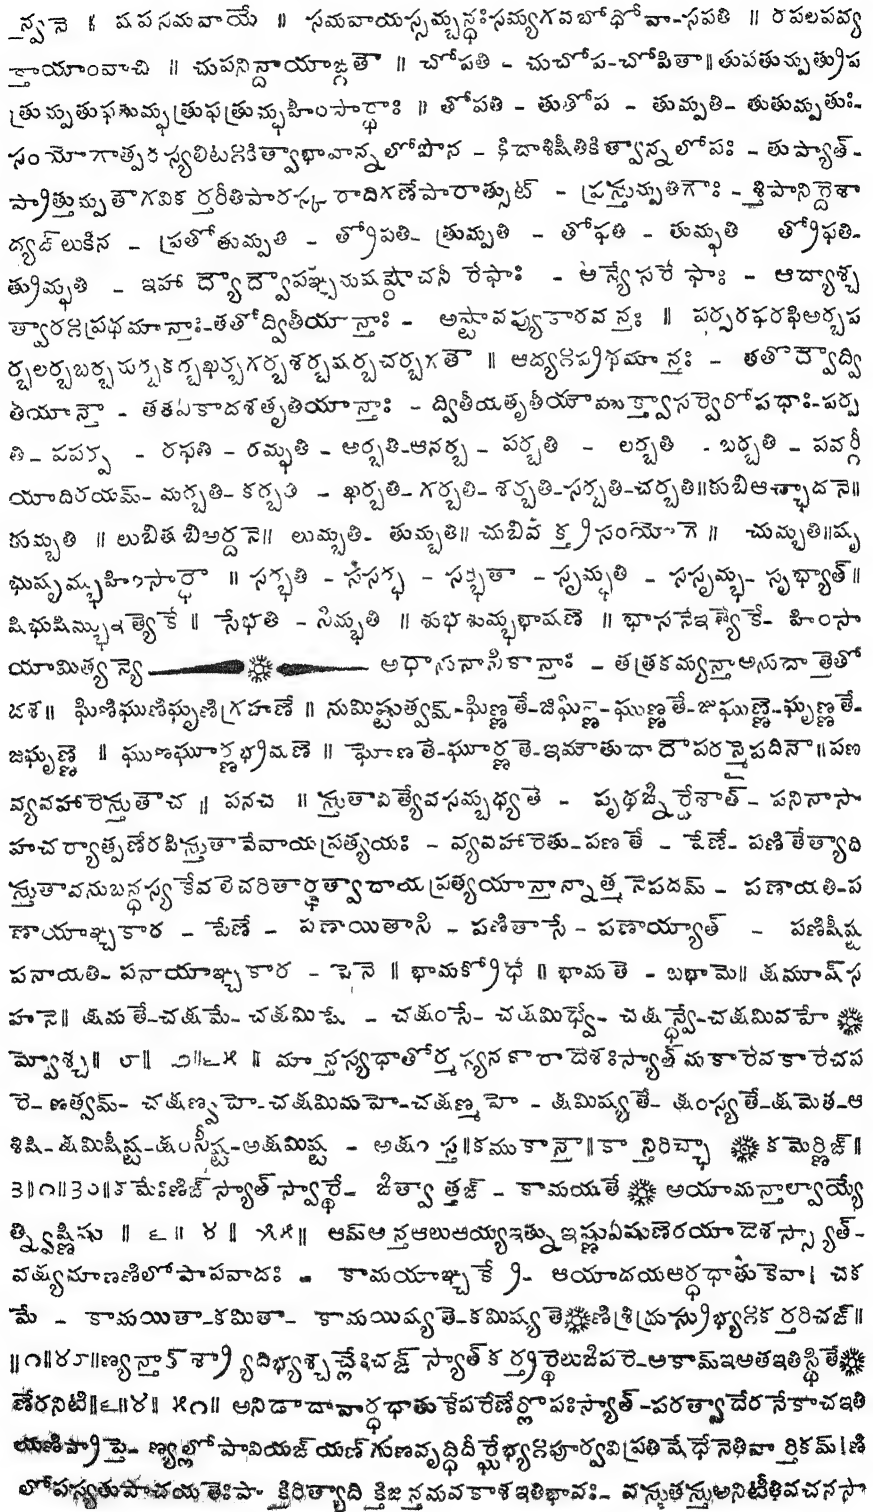 న్త్వనె ॥ షపసమవాయే ॥ సమవాయస్సమ్బన్ధఃసమ్యగవబోధోవా-సపతి ॥ రపలపవ్య
క్తాయాంవాచి ॥ చుపనిన్దాయాఙ్గతౌ ॥ చోపతి - చుచోప-చోపితా॥తుపతుమ్పత్రుప
త్రుమ్పతుఫతుమ్ఫత్రుఫత్రుమ్ఫహింసార్థాః ॥ తోపతి - తుతోప - తుమ్పతి- తుతుమ్పతుః-
సంయోగాత్పరస్యలిటఃకిత్వాభావాన్నలోపోన - కిదాశిషీతికిత్వాన్నలోపః - తుప్యాత్-
ప్రాత్తుమ్పతౌగవికర్తరీతిపారస్కరాదిగణేపాఠాత్సుట్ - ప్రస్తుమ్పతిగౌః - శ్తిపానిర్దేశా
ద్యఙ్లుకిన - ప్రతోతుమ్పతి - త్రోపతి- త్రుమ్పతి - తోఫతి - తుమ్ఫతి త్రోఫతి-
త్రుమ్ఫతి - ఇహాద్యౌద్వౌపఞ్చమషష్ఠౌచనీరేఫాః - అన్యేసరేఫాః - ఆద్యాశ్చ
త్వారఃప్రథమాన్తాః-తతోద్వితీయాన్తాః - అష్టావప్యుకారవన్తః ॥ పర్పరఫరఫిఅర్బప
ర్బలర్బబర్బమర్బకర్బఖర్బగర్బశర్బషర్బచర్బగతౌ ॥ ఆద్యఃప్రథమాన్తః - తతోద్వౌద్వి
తీయాన్తౌ - తతఏకాదశతృతీయాన్తాః - ద్వితీయతృతీయౌముక్త్వాసర్వేరోపధాః-పర్ప
తి- పపర్ప - రఫతి - రమ్ఫతి - అర్బతి-ఆనర్బ - పర్బతి - లర్బతి - బర్బతి - పవర్గీ
యాదిరయమ్- మర్బతి- కర్బతి - ఖర్బతి- గర్బతి- శర్బతి-సర్బతి-చర్బతి॥కుబిఆచ్ఛాదనె॥
కుమ్బతి ॥ లుబితుబిఅర్దనె॥ లుమ్బతి- తుమ్బతి॥ చుబివక్త్రసంయోగె॥ చుమ్బతి॥షృ
భుషృమ్భుహింసార్థౌ ॥ సర్భతి - ససర్భ - సర్భితా - సృమ్భతి - ససృమ్భ- సృభ్యాత్॥
షిభుషిమ్భుఇత్యేకే ॥ సేభతి - సిమ్భతి ॥ శుభశుమ్భభాషణె ॥ భాసనేఇత్యేకే- హింసా
యామిత్యన్యె అథానునాసికాన్తాః - తత్రకమ్యన్తాఅనుదాత్తెతో
దశ॥ ఘిణిఘుణిఘృణిగ్రహణే ॥ నుమిష్టుత్వమ్-ఘిణ్ణతే-జిఘిణ్ణె-ఘుణ్ణతే-జుఘుణ్ణె-ఘృణ్ణతే-
జఘృణ్ణె ॥ ఘుణఘూర్ణభ్రమణె ॥ ఘోణతే-ఘూర్ణతె-ఇమౌతుదాదౌపరస్మైపదినౌ॥పణ
వ్యవహారెస్తుతౌచ ॥ పనచ ॥ స్తుతావిత్యేవసమ్బధ్యతే - పృథఙ్నిర్దేశాత్- పనినాసా
హచర్యాత్పణేరపిస్తుతావేవాయప్రత్యయః - వ్యవహారెతు-పణతే - పేణే- పణితేత్యాది
స్తుతావనుబన్ధస్యకేవలెచరితార్థత్వాదాయప్రత్యయాన్తాన్నాత్మనెపదమ్ - పణాయతి-ప
ణాయాఞ్చకార - పేణే - పణాయితాసి - పణితాసే- పణాయ్యాత్ - పణిషీష్ట
పనాయతి- పనాయాఞ్చకార - పెనె ॥ భామక్రోధే ॥ భామతె - బభామె॥ క్షమూష్స
హనె॥ క్షమతే-చక్షమే- చక్షమిషే - చక్షంసే- చక్షమిధ్వే- చక్షన్ధ్వే-చక్షమివహే
మ్వోశ్చ॥ ౮॥ ౨॥౬౫ ॥ మాన్తస్యధాతోర్మస్యనకారాదెశఃస్యాత్మకారేవకారేచప
రె- ణత్వమ్- చక్షణ్వహె-చక్షమిమహె-చక్షణ్మహె - క్షమిష్యతే- క్షంస్యతే-క్షమెత-ఆ
శిషి-క్షమిషీష్ట-క్షంసీష్ట-అక్షమిష్ట - అక్షంస్త॥కముకాన్తౌ॥కాన్తిరిచ్ఛా కమెర్ణిఙ్॥
౩॥౧॥౩౦॥కమేఃణిఙ్స్యాత్స్వార్థే- ఙిత్వాత్తఙ్ - కామయతే అయామన్తాల్వాయ్యే
త్న్విష్ణుషు ॥ ౬॥ ౪॥ ౫౫॥ ఆమ్అన్తఆలుఆయ్యఇత్నుఇష్ణుఏషుణెరయాదెశస్స్యాత్-
వక్ష్యమాణణిలోపాపవాదః - కామయాఞ్చకే- ఆయాదయఆర్ధధాతుకెవా। చక
మే - కామయితా-కమితా- కామయిష్యతె-కమిష్యతెణిశ్రిద్రుస్రుభ్యఃకర్తరిచఙ్॥
॥౧॥౪౮॥ణ్యన్తాత్శ్ర్యాదిభ్యశ్చచ్లేఃచఙ్స్యాత్కర్త్రర్థెలుఙిపరె-అకామ్ఇఅతఇతిస్థితే
ణేరనిటి॥౬॥౪॥ ౫౧॥ అనిడాదావార్ధధాతుకేపరేణేర్లోపఃస్యాత్-పరత్వాదేరనేకాచఇతి
యణిప్రాప్తె- ణ్యల్లోపావియఙ్యణ్గుణవృద్ధిదీర్ఘేభ్యఃపూర్వవిప్రతిషేధేనెతివార్తికమ్।ణి
లోపస్యతుపాచయతెఃపాక్తిరిత్యాదిక్తిజన్తమవకాశఇతిభావః- వస్తుతస్తుఅనిటీతివచనసా